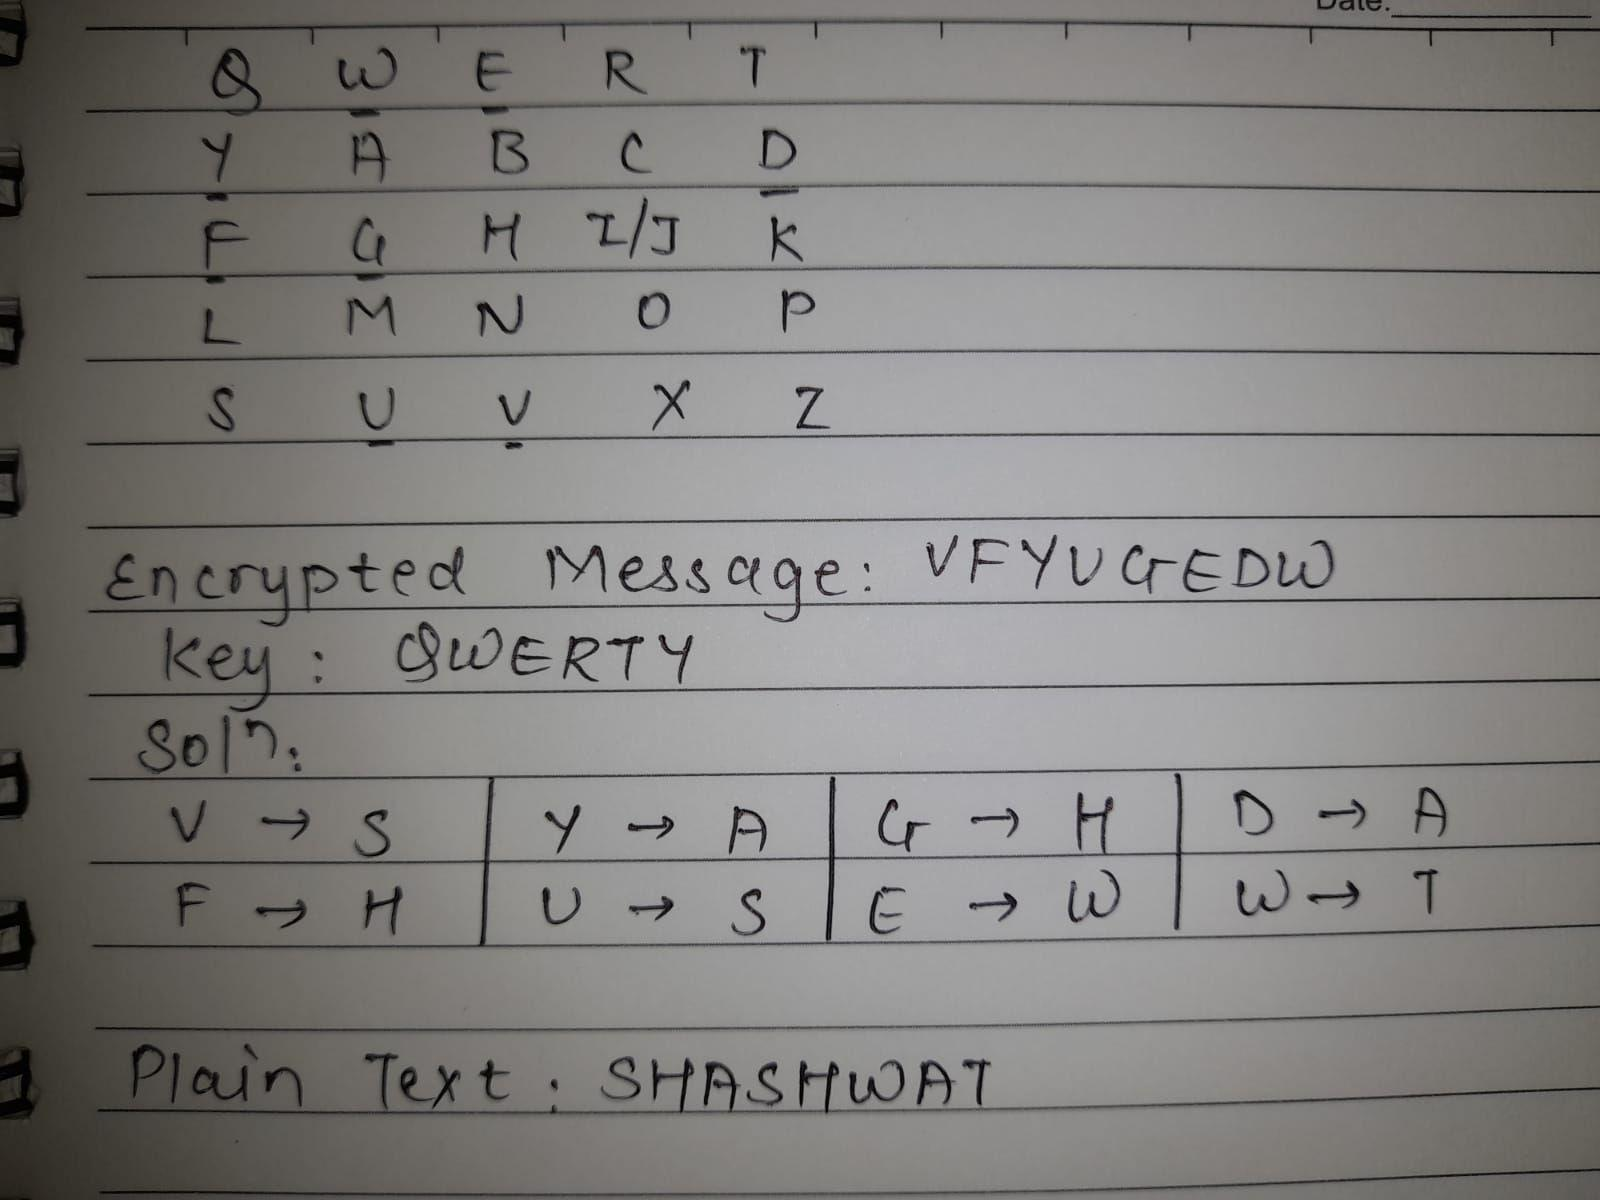 Date:
Q W E R T
Y A B C D
F G H I/J K
L M N O P
S U V X Z
Encrypted Message: VFYUGEDW
Key: QWERTY
Soln:
V → S | Y → A | G → H | D → A
F → H | U → S | E → W | W → T
Plain Text: SHASHWAT